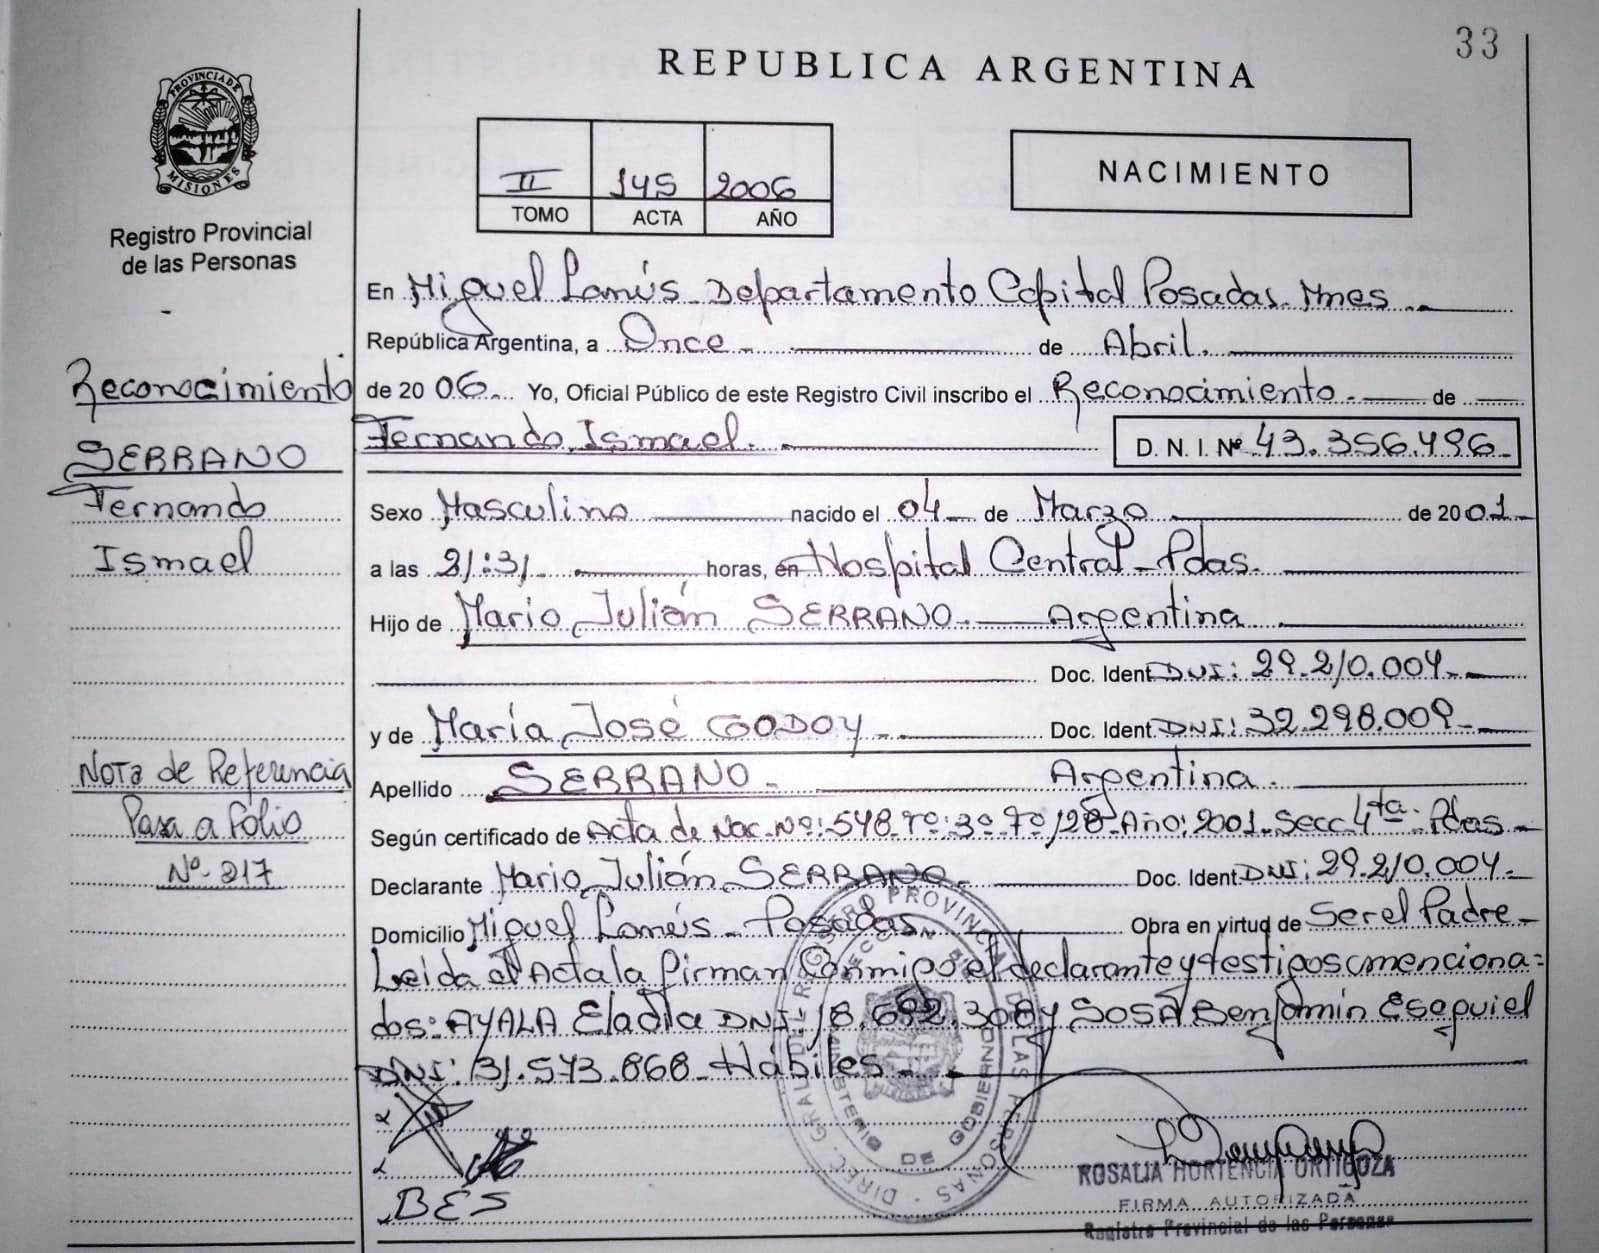 33
REPUBLICA ARGENTINA
PROVINCIA DE
MISIONES
Registro Provincial
de las Personas
II 145 2006
TOMO ACTA AÑO
NACIMIENTO
En Miguel Lanús Departamento Capital Posadas Mnes
República Argentina, a Once de Abril.
de 2006. Yo, Oficial Público de este Registro Civil inscribo el Reconocimiento de
Fernando Ismael. D. N. I. Nº 43.356.496
Sexo Masculino nacido el 04 de Marzo de 2001
a las 21:31 horas, en Hospital Central Pdas.
Hijo de Mario Julián SERRANO Argentina
Doc. Ident DNI: 29.210.004
y de María José GODOY Doc. Ident DNI: 32.298.009
Apellido SERRANO Argentina.
Según certificado de Acta de Nac. Nº: 548 Tº: 3º Fº 128 Año: 2001 Secc 4ta Pdas
Declarante Mario Julián SERRANO Doc. Ident. DNI: 29.210.004
Domicilio Miguel Lanús Posadas Obra en virtud de Ser el Padre
Leída el Acta la firman Conmigo el declarante y testigos menciona=
dos: AYALA Eladia DNI: 18.692.308 y SOSA Benjamín Esequiel
DNI: 31.573.868 Hábiles
BES
Reconocimiento
SERRANO
Fernando
Ismael
Nota de Referencia
Pasa a Folio
Nº 217
DIREC. GRAL. DEL REGISTRO PROVINCIAL DE LAS PERSONAS
MINISTERIO DE GOBIERNO
ROSALIA HORTENCIA ORTIGOZA
FIRMA AUTORIZADA
Registro Provincial de las Personas